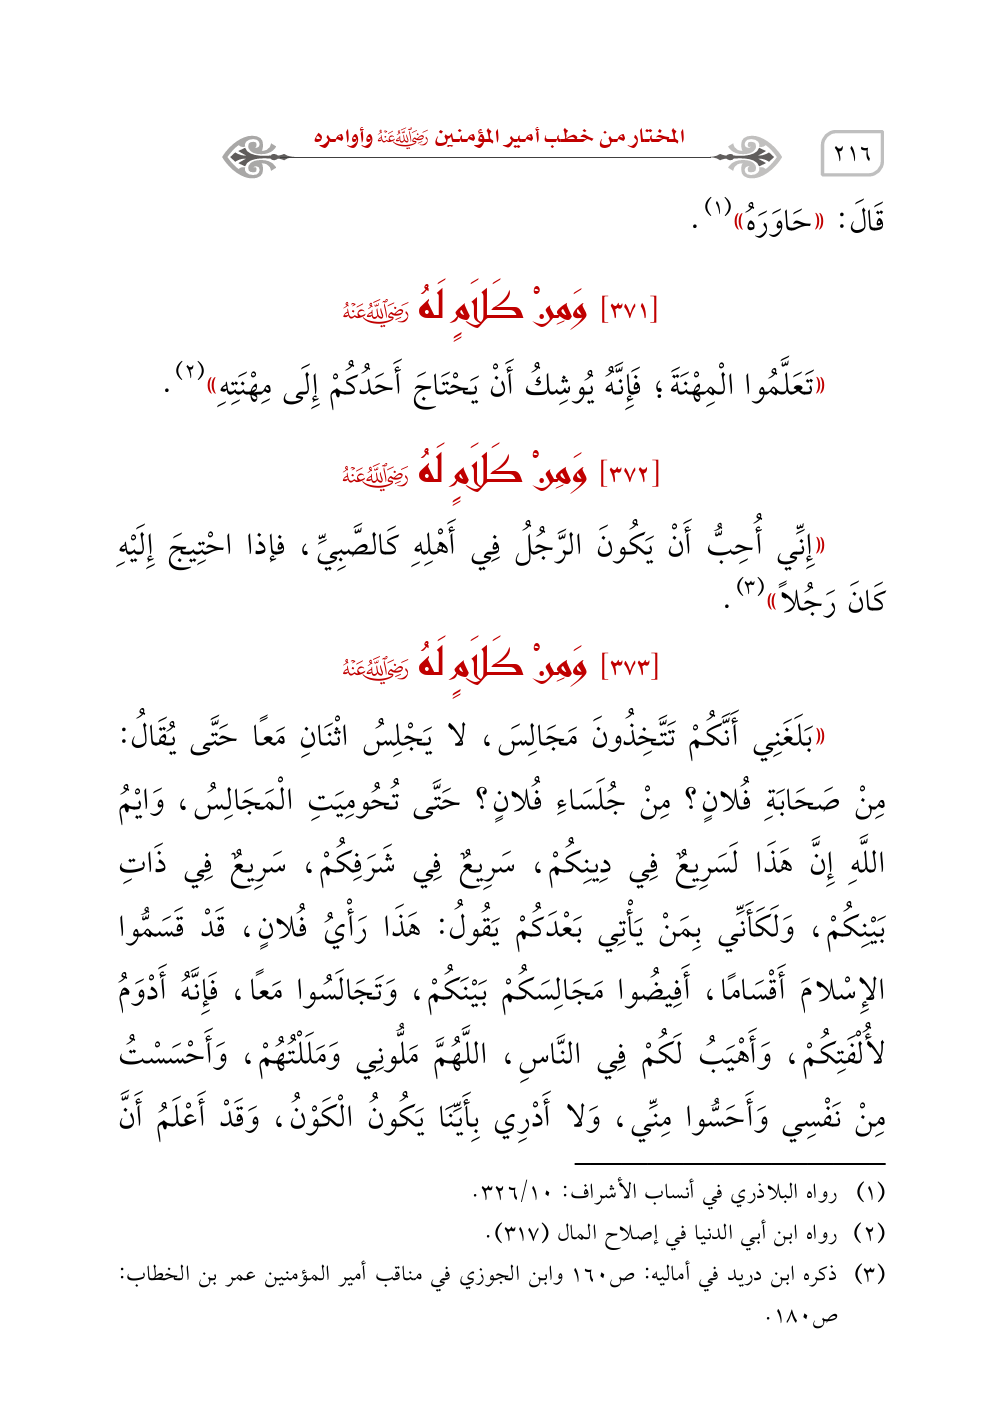 المختار من خطب أمير المؤمنين رَضِيَ اللَّهُ عَنْهُ وأوامره
٢١٦
قَالَ: «حَاوَرَهُ»(١).
[٣٧١] وَمِنْ كَلَامٍ لَهُ رَضِيَ اللَّهُ عَنْهُ
«تَعَلَّمُوا الْمِهْنَةَ؛ فَإِنَّهُ يُوشِكُ أَنْ يَحْتَاجَ أَحَدُكُمْ إِلَى مِهْنَتِهِ»(٢).
[٣٧٢] وَمِنْ كَلَامٍ لَهُ رَضِيَ اللَّهُ عَنْهُ
«إِنِّي أُحِبُّ أَنْ يَكُونَ الرَّجُلُ فِي أَهْلِهِ كَالصَّبِيِّ، فإذا احْتِيجَ إِلَيْهِ
كَانَ رَجُلاً»(٣).
[٣٧٣] وَمِنْ كَلَامٍ لَهُ رَضِيَ اللَّهُ عَنْهُ
«بَلَغَنِي أَنَّكُمْ تَتَّخِذُونَ مَجَالِسَ، لا يَجْلِسُ اثْنَانِ مَعًا حَتَّى يُقَالُ:
مِنْ صَحَابَةِ فُلانٍ؟ مِنْ جُلَسَاءِ فُلانٍ؟ حَتَّى تُحُومِيَتِ الْمَجَالِسُ، وَايْمُ
اللَّهِ إِنَّ هَذَا لَسَرِيعٌ فِي دِينِكُمْ، سَرِيعٌ فِي شَرَفِكُمْ، سَرِيعٌ فِي ذَاتِ
بَيْنِكُمْ، وَلَكَأَنِّي بِمَنْ يَأْتِي بَعْدَكُمْ يَقُولُ: هَذَا رَأْيُ فُلانٍ، قَدْ قَسَمُّوا
الإِسْلامَ أَقْسَامًا، أَفِيضُوا مَجَالِسَكُمْ بَيْنَكُمْ، وَتَجَالَسُوا مَعًا، فَإِنَّهُ أَدْوَمُ
لأُلْفَتِكُمْ، وَأَهْيَبُ لَكُمْ فِي النَّاسِ، اللَّهُمَّ مَلُّونِي وَمَلَلْتُهُمْ، وَأَحْسَسْتُ
مِنْ نَفْسِي وَأَحَسُّوا مِنِّي، وَلا أَدْرِي بِأَيِّنَا يَكُونُ الْكَوْنُ، وَقَدْ أَعْلَمُ أَنَّ
(١) رواه البلاذري في أنساب الأشراف: ٣٢٦/١٠.
(٢) رواه ابن أبي الدنيا في إصلاح المال (٣١٧).
(٣) ذكره ابن دريد في أماليه: ص١٦٠ وابن الجوزي في مناقب أمير المؤمنين عمر بن الخطاب:
ص١٨٠.